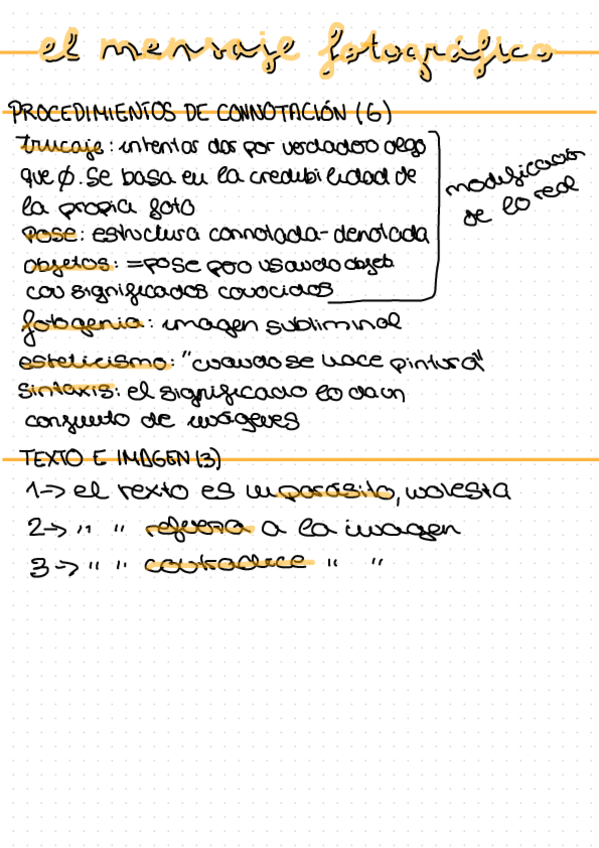 el mensaje fotográfico
PROCEDIMIENTOS DE CONNOTACIÓN (6)
trucaje: intentar dar por verdadero algo
que ∅. Se basa en la credibilidad de
la propia foto
Pose: estructura connotada-denotada
objetos: =pose pero usando objeto
con significados conocidos
modificación
de lo real
fotogenia: imagen subliminal
esteticismo: "cuando se hace pintura"
sintaxis: el significado lo da un
conjunto de imágenes
TEXTO E IMAGEN (3)
1-> el texto es un parásito, molesta
2-> " " refuerza a la imagen
3-> " " contradice " "